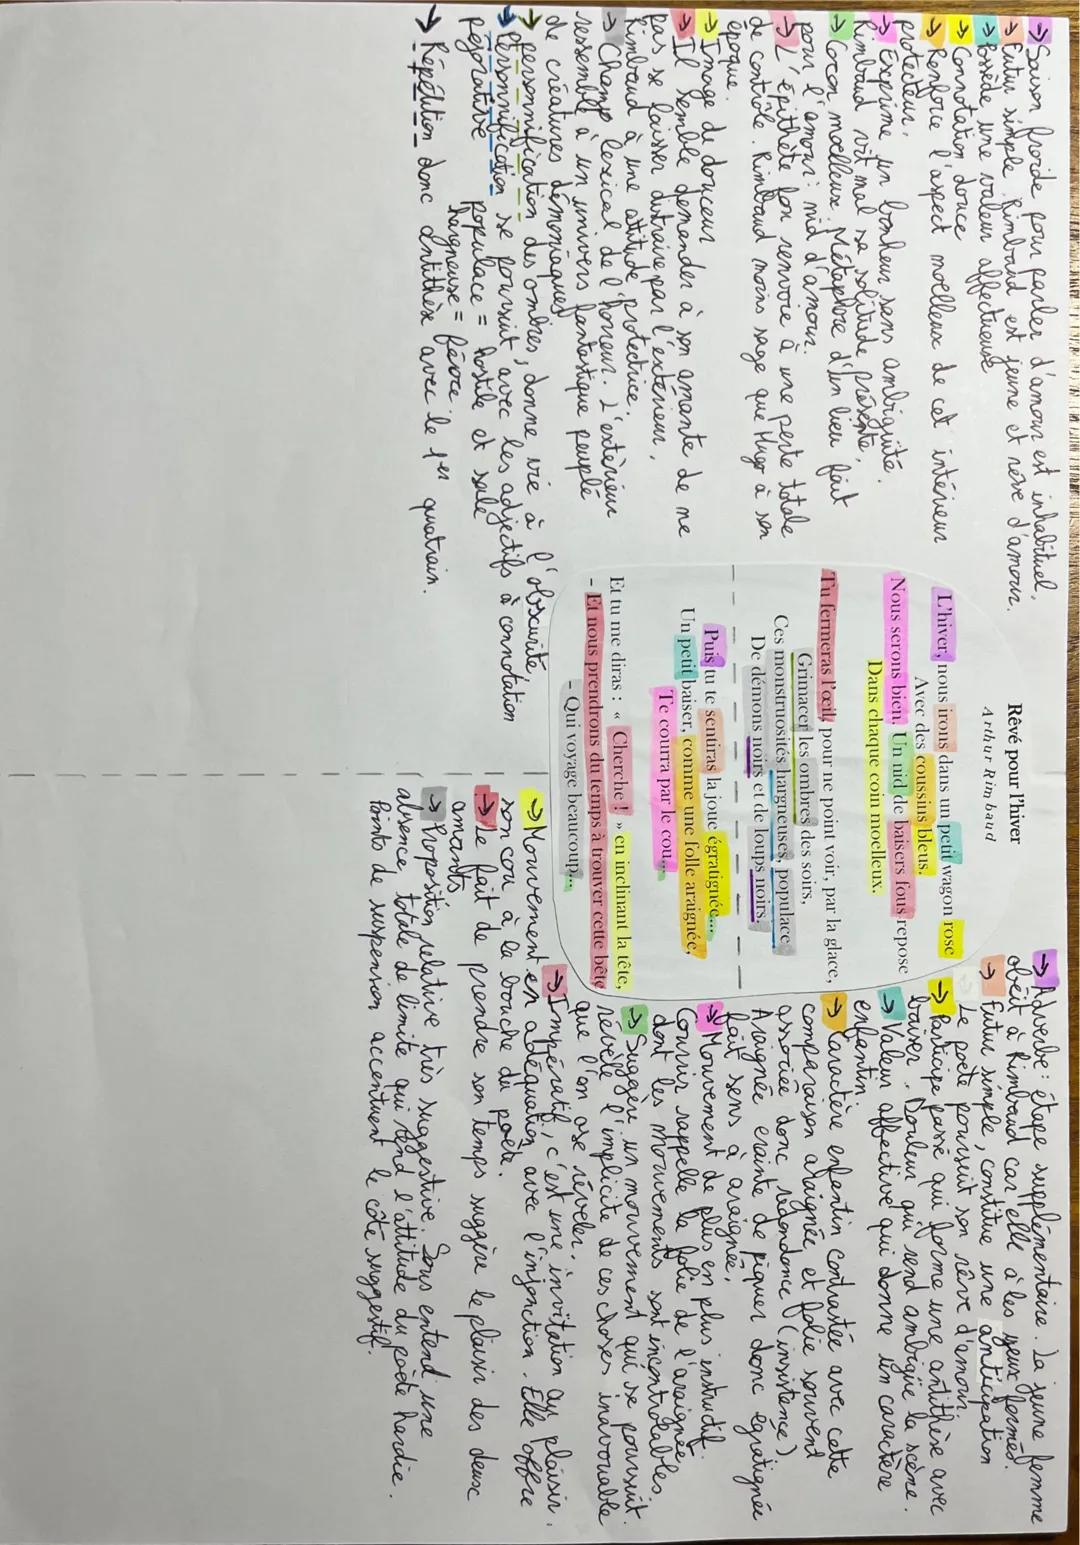 Rêvé pour l'hiver
Arthur Rimbaud
L'hiver, nous irons dans un petit wagon rose
Avec des coussins bleus.
Nous serons bien. Un nid de baisers fous repose
Dans chaque coin moelleux.
Tu fermeras l'œil, pour ne point voir, par la glace,
Grimacer les ombres des soirs,
Ces monstruosités hargneuses, populace
De démons noirs et de loups noirs.
Puis tu te sentiras la joue égratignée...
Un petit baiser, comme une folle araignée,
Te courra par le cou...
Et tu me diras : « Cherche ! » en inclinant la tête,
- Et nous prendrons du temps à trouver cette bête
- Qui voyage beaucoup...
→ Saison froide pour parler d'amour est inhabituel.
→ Futur simple. Rimbaud est jeune et rêve d'amour.
→ Possède une valeur affectueuse
→ Connotation douce
→ Renforce l'aspect moelleux de cet intérieur
protecteur.
→ Exprime un bonheur sans ambiguïté.
Rimbaud vit mal sa solitude présente.
→ Cocon moelleux. Métaphore d'un lieu fait
pour l'amour : nid d'amour.
→ L'épithète fou renvoie à une perte totale
de contrôle. Rimbaud moins sage que Hugo à son
époque.
→ Image de douceur
→ Il semble demander à son amante de ne
pas se laisser distraire par l'extérieur.
Rimbaud à une attitude protectrice.
→ Champ lexical de l'horreur. L'extérieur
ressemble à un univers fantastique peuplé
de créatures démoniaques
→ personnification des ombres, donne vie à l'obscurité.
→ Personnification se poursuit avec les adjectifs à connotation
péjorative populace = hostile et sale
hargneuse = féroce.
→ Répétition donc antithèse avec le 1er quatrain.
→ Adverbe : étape supplémentaire. La jeune femme
obéit à Rimbaud car elle à les yeux fermés.
→ Futur simple, constitue une anticipation
Le poète poursuit son rêve d'amour.
→ Participe passé qui forme une antithèse avec
baiser. Douleur qui rend ambigüe la scène.
→ Valeur affective qui donne un caractère
enfantin.
→ Caractère enfantin contrastée avec cette
comparaison araignée et folie souvent
associée donc redondance (insistence)
Araignée crainte de piquer donc égratignée
fait sens à araignée.
→ Mouvement de plus en plus instructif.
Courir rappelle la folie de l'araignée
dont les mouvements sont incontrôlables.
→ Suggère un mouvement qui se poursuit.
révèle l'implicite de ces choses inavouable
que l'on ose révéler.
→ Impératif, c'est une invitation au plaisir.
→ Mouvement en adéquation avec l'injonction. Elle offre
son cou à la bouche du poète.
→ Le fait de prendre son temps suggère le plaisir des deux
amants.
→ Proposition relative très suggestive. Sous entend une
absence totale de limite qui rend l'attitude du poète hardie.
Points de suspension accentuent le côté suggestif.